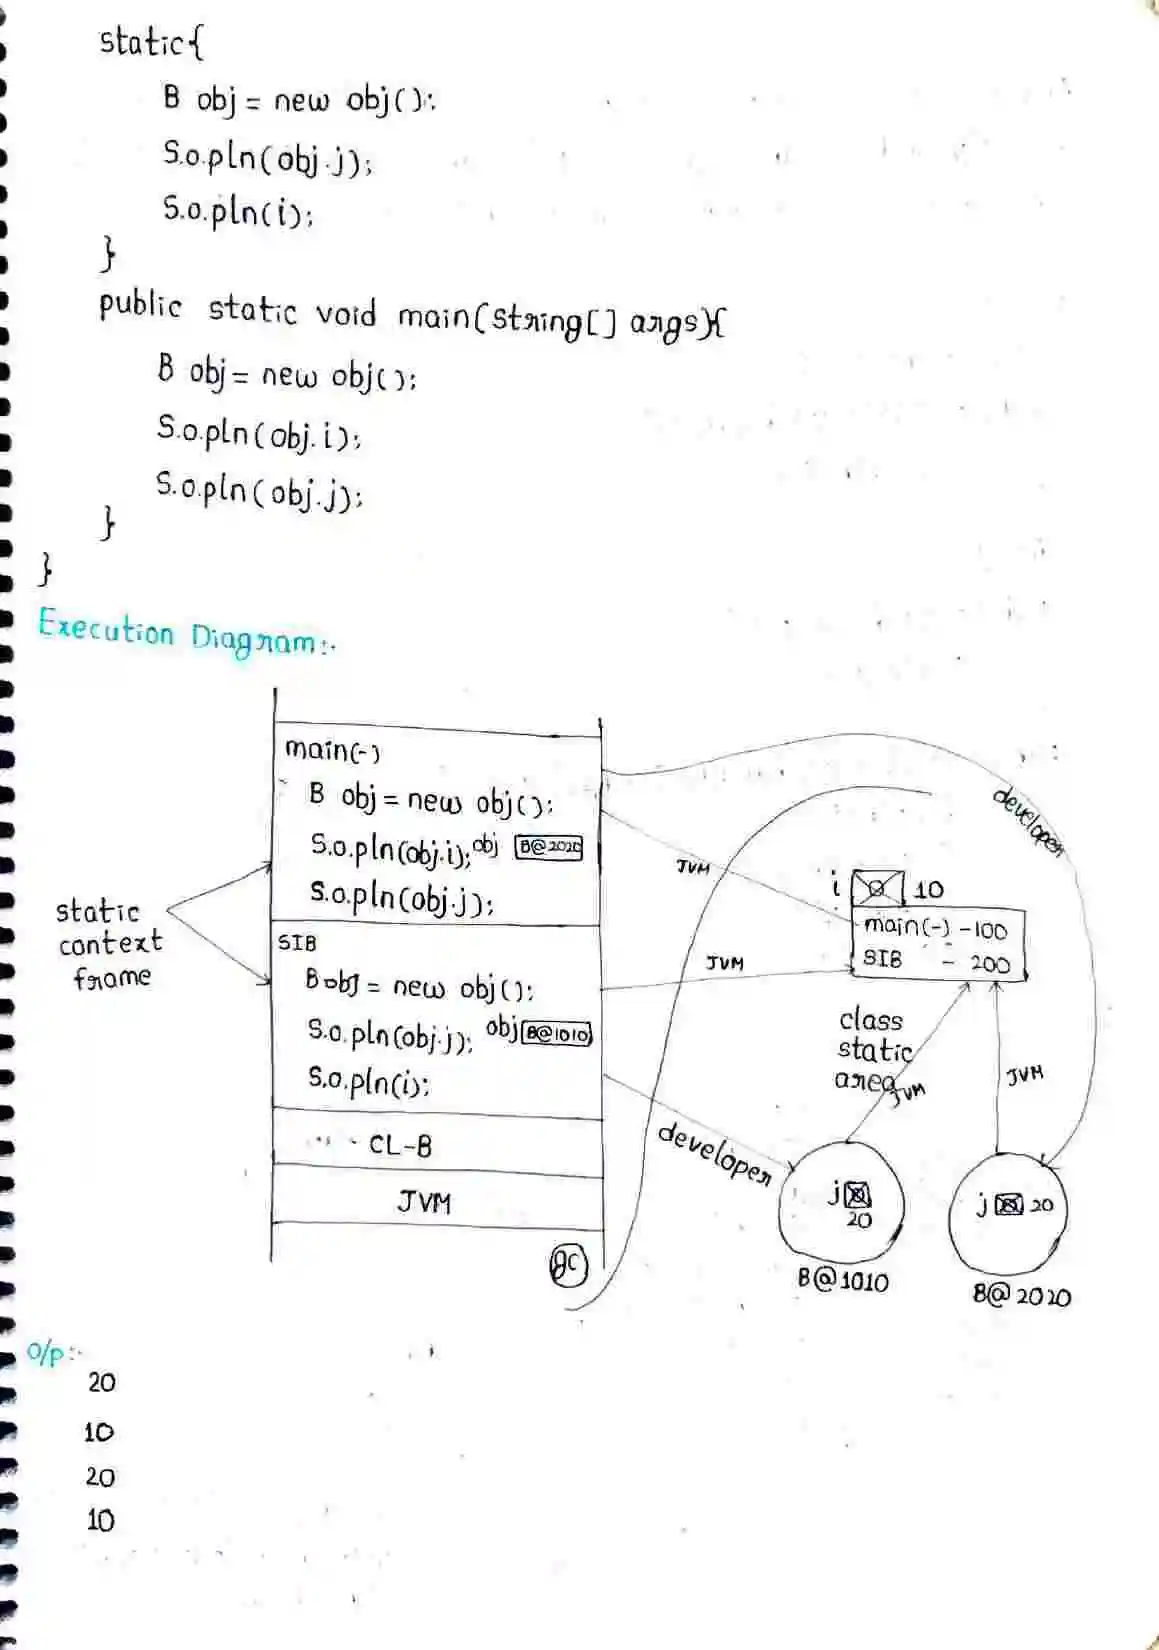 static{
B obj = new obj();
S.o.pln(obj.j);
S.o.pln(i);
}
public static void main(string[] args){
B obj = new obj();
S.o.pln(obj.i);
S.o.pln(obj.j);
}
}
Execution Diagram:-
main(-)
B obj = new obj();
S.o.pln(obj.i); obj B@2020
S.o.pln(obj.j);
static
context
frame
SIB
B obj = new obj();
S.o.pln(obj.j); obj B@1010
S.o.pln(i);
CL-B
JVM
gc
developer
JVM
i 0 10
main(-) - 100
SIB - 200
JVM
class
static
area
JVM
JVM
developer
j 0
20
B@1010
j 0 20
B@2020
O/p:-
20
10
20
10